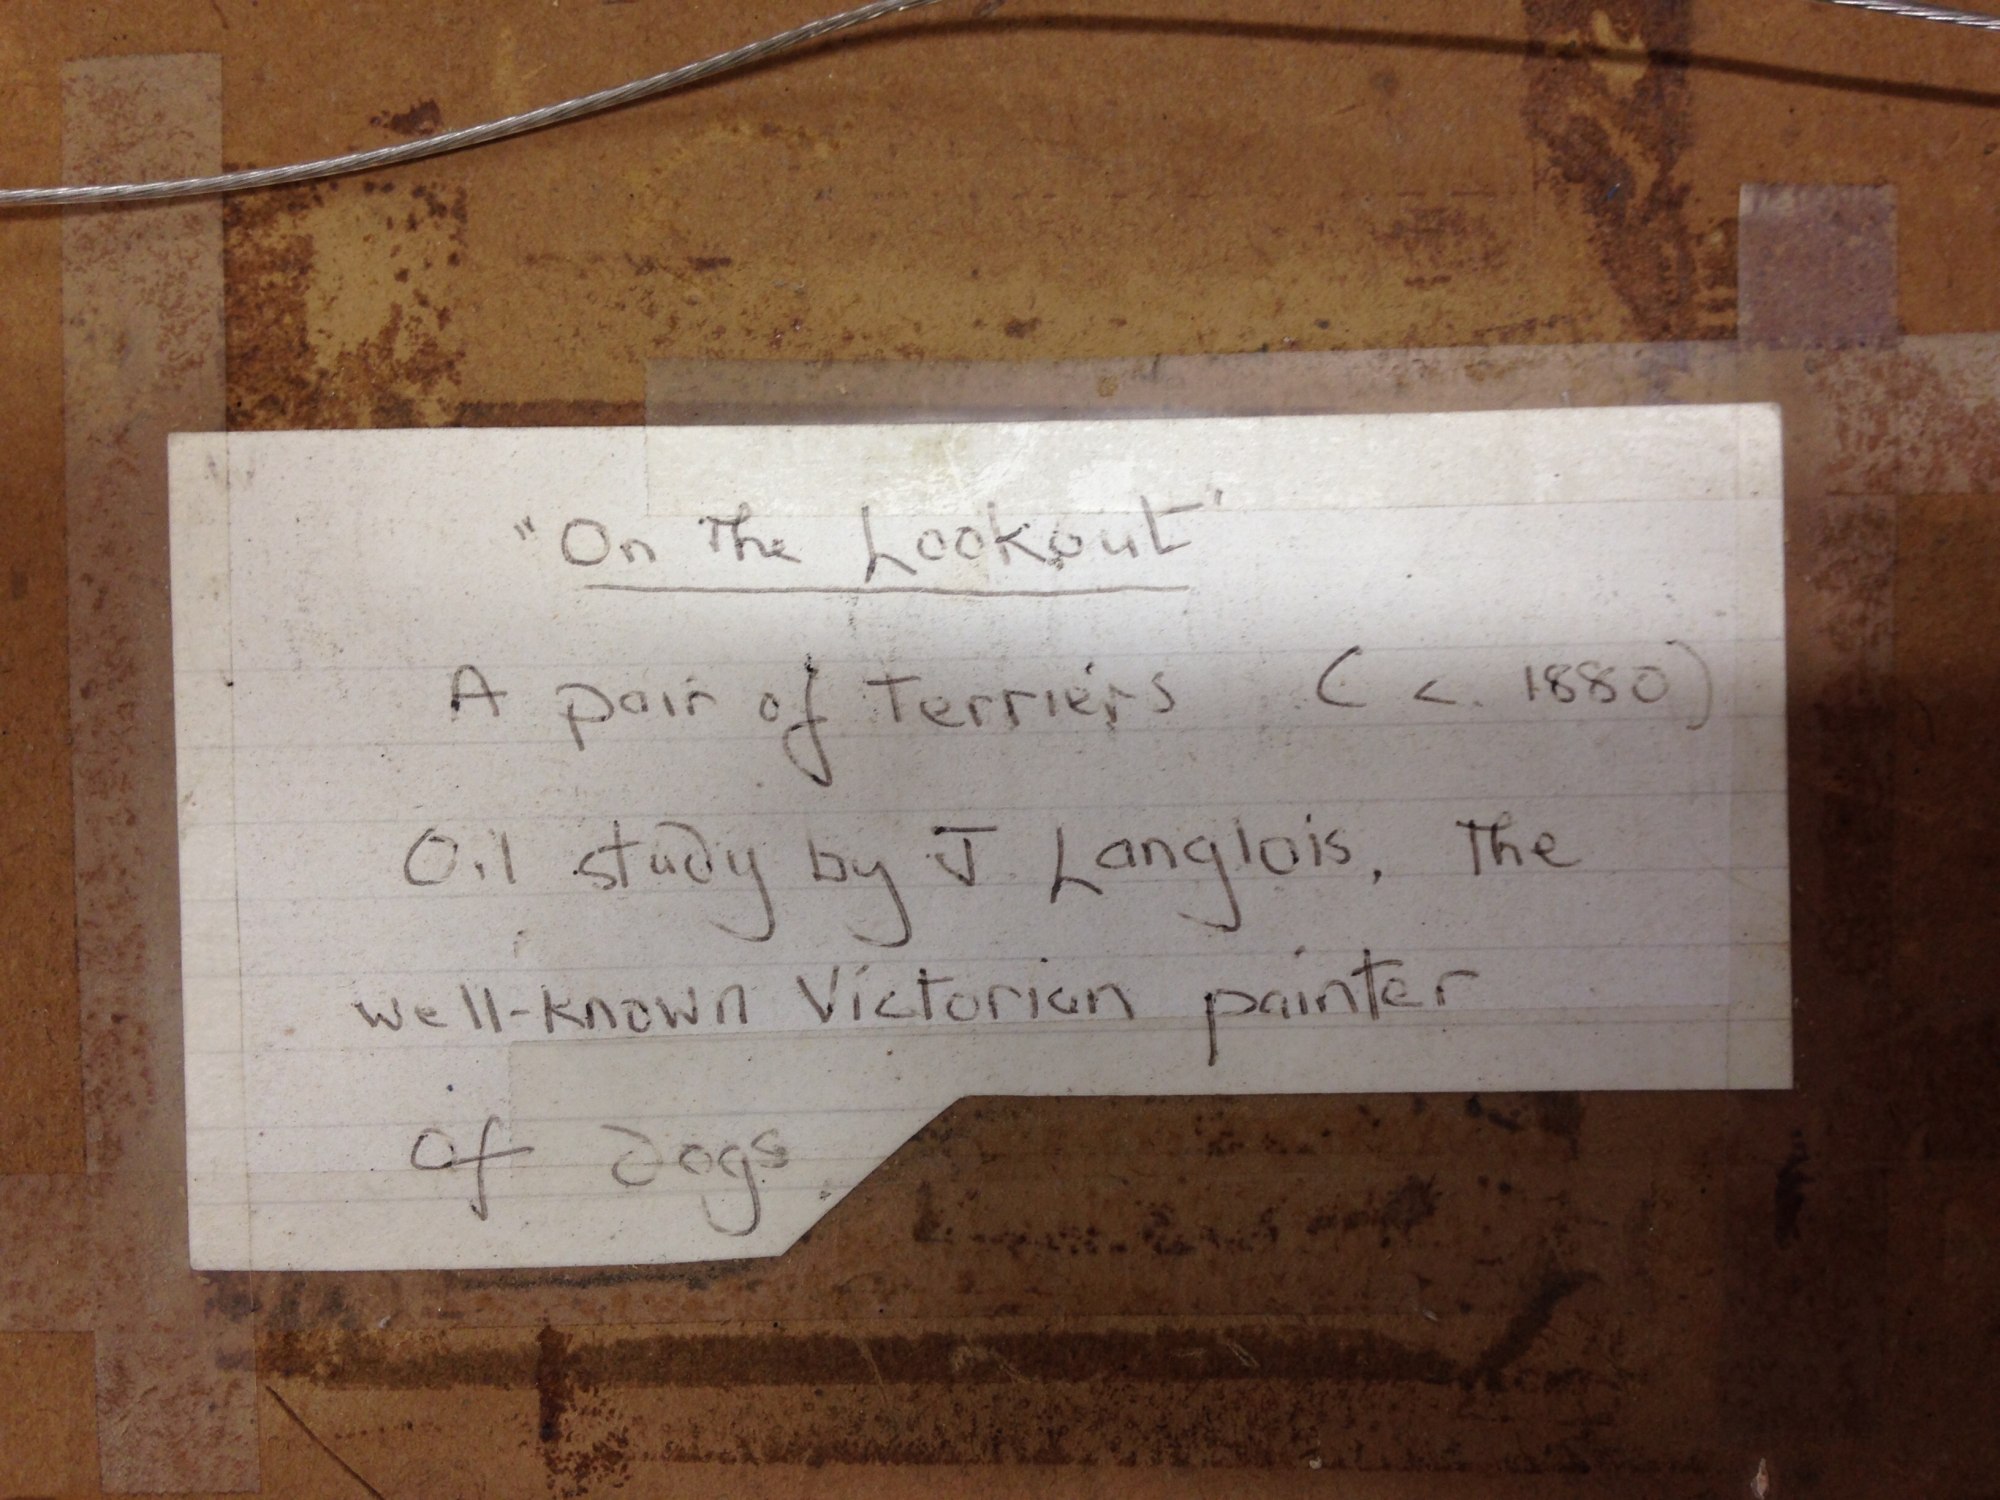 "On The Lookout"
A pair of Terriers (c. 1880)
Oil study by J Langlois, The
well-known Victorian painter
of dogs